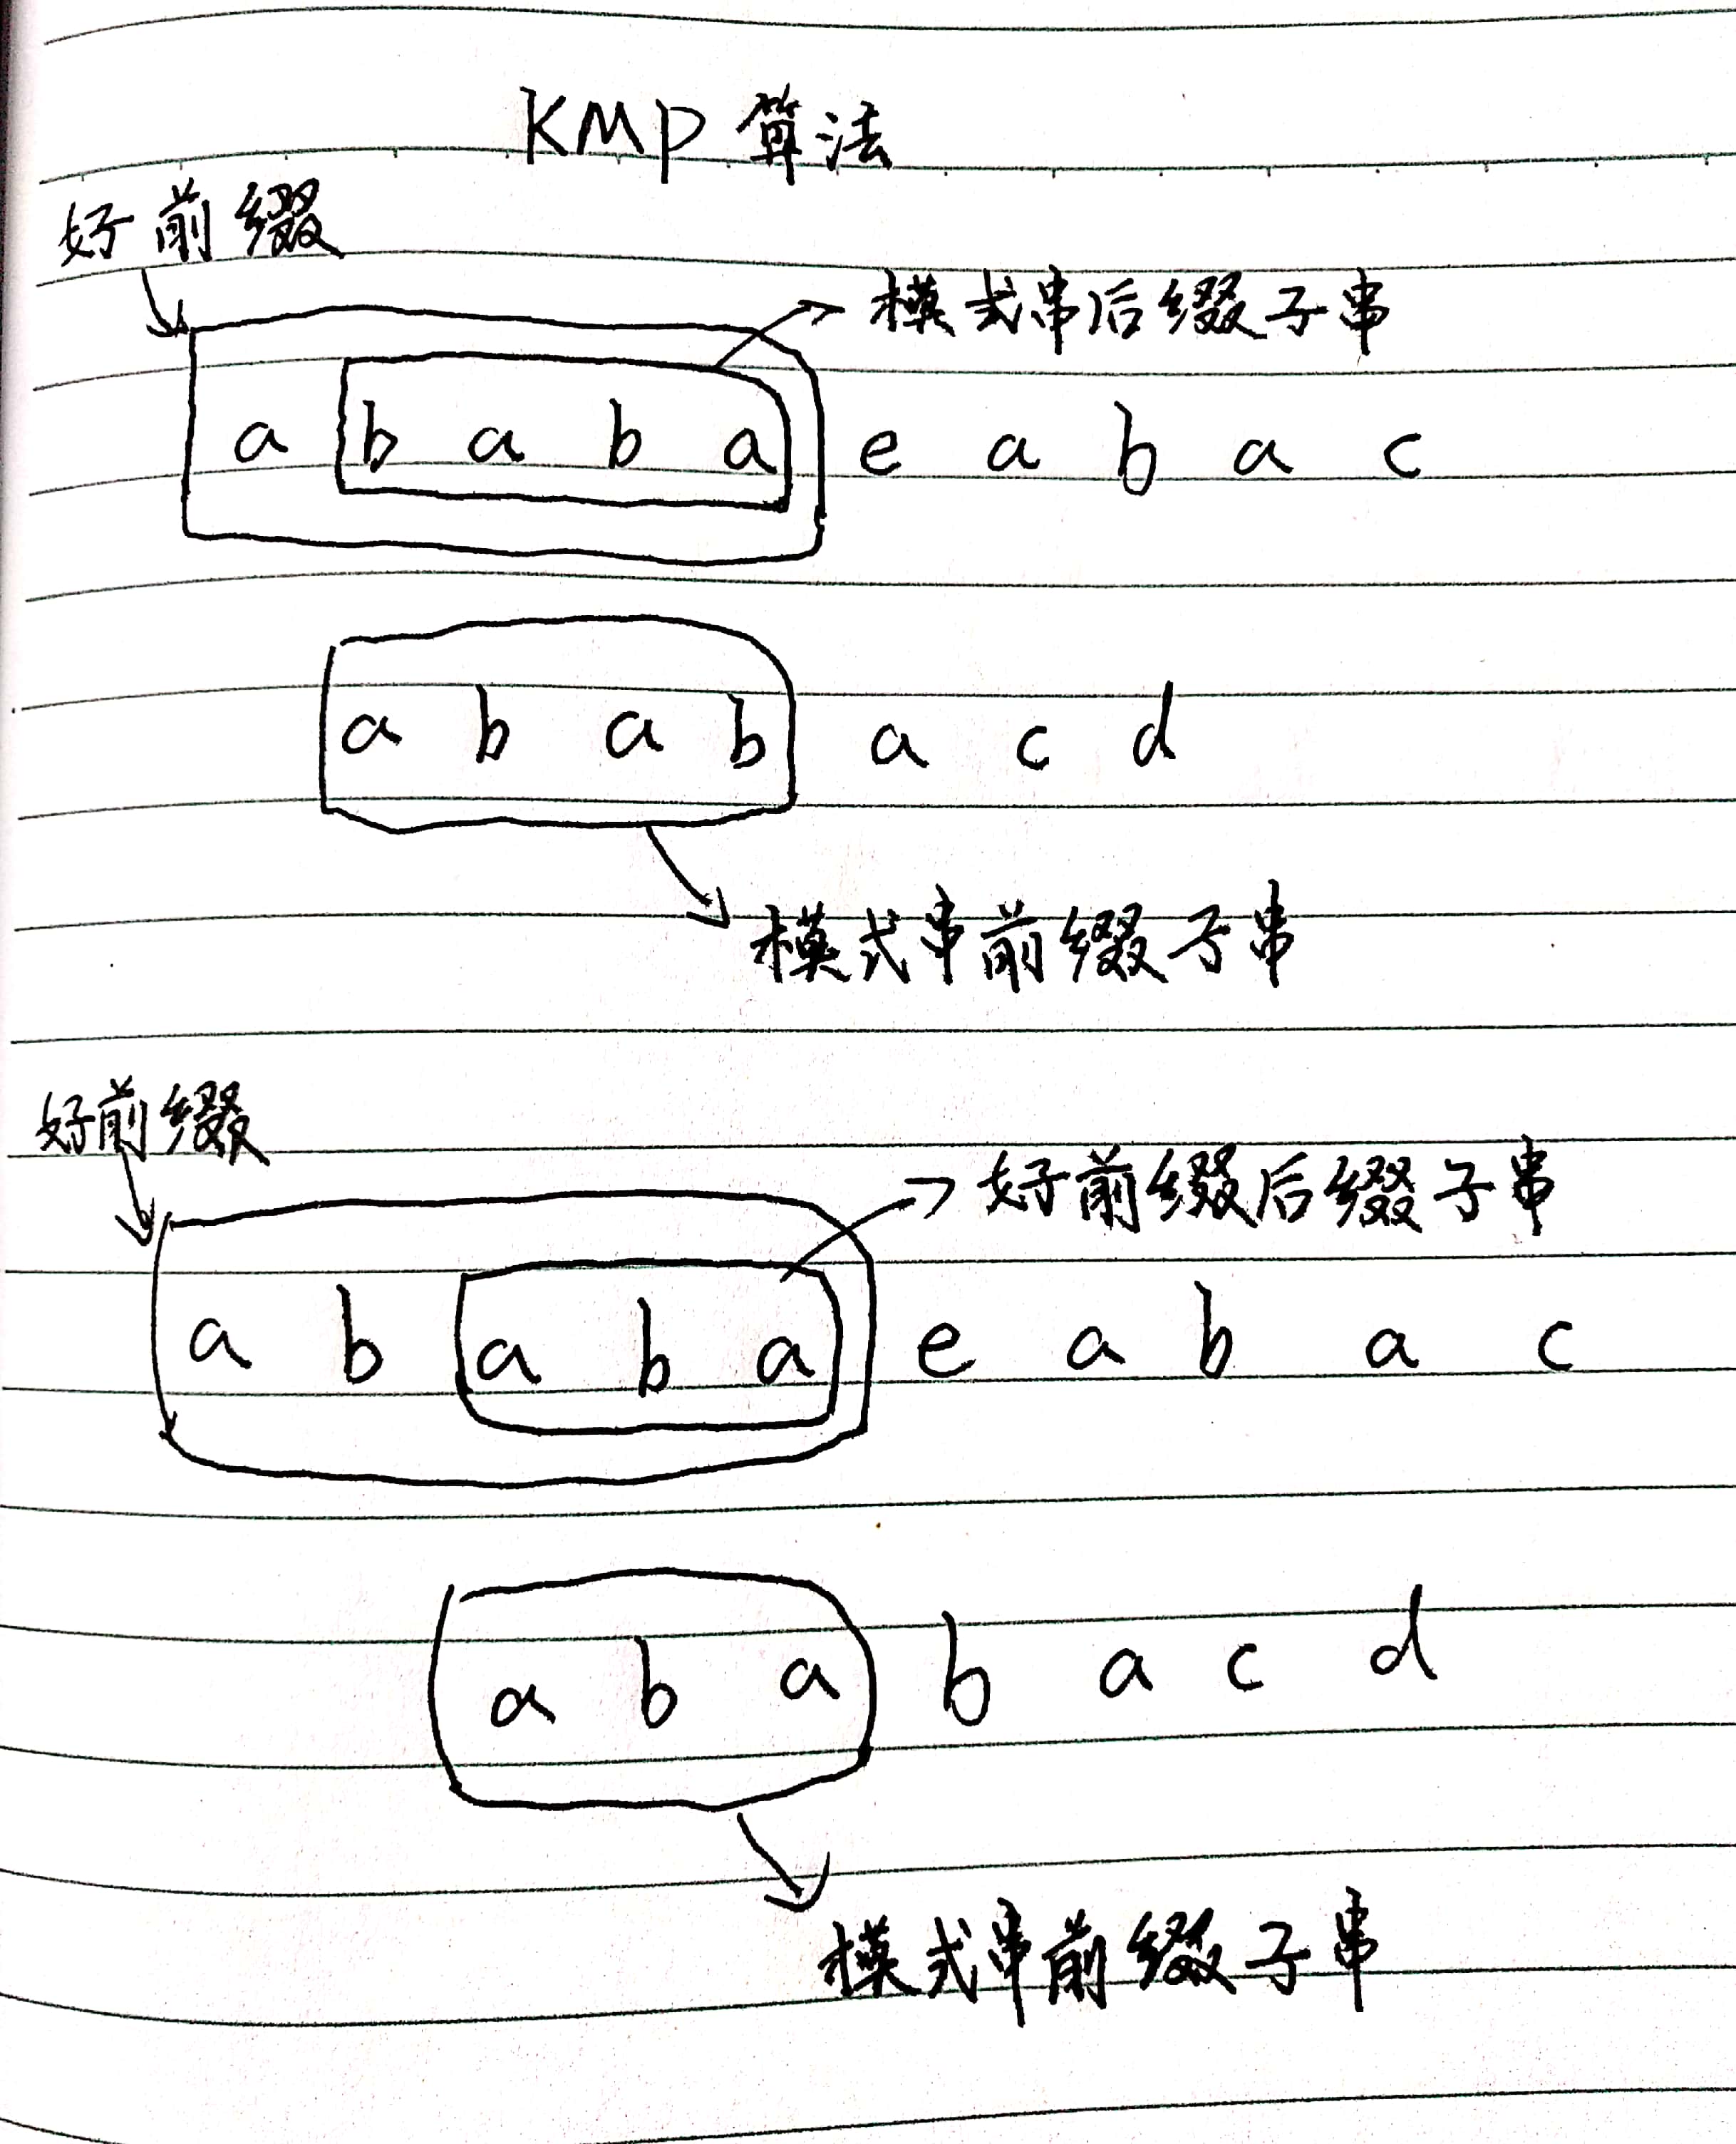 KMP 算法
好前缀
模式串后缀子串
a b a b a e a b a c
a b a b a c d
模式串前缀子串
好前缀
好前缀后缀子串
a b a b a e a b a c
a b a b a c d
模式串前缀子串